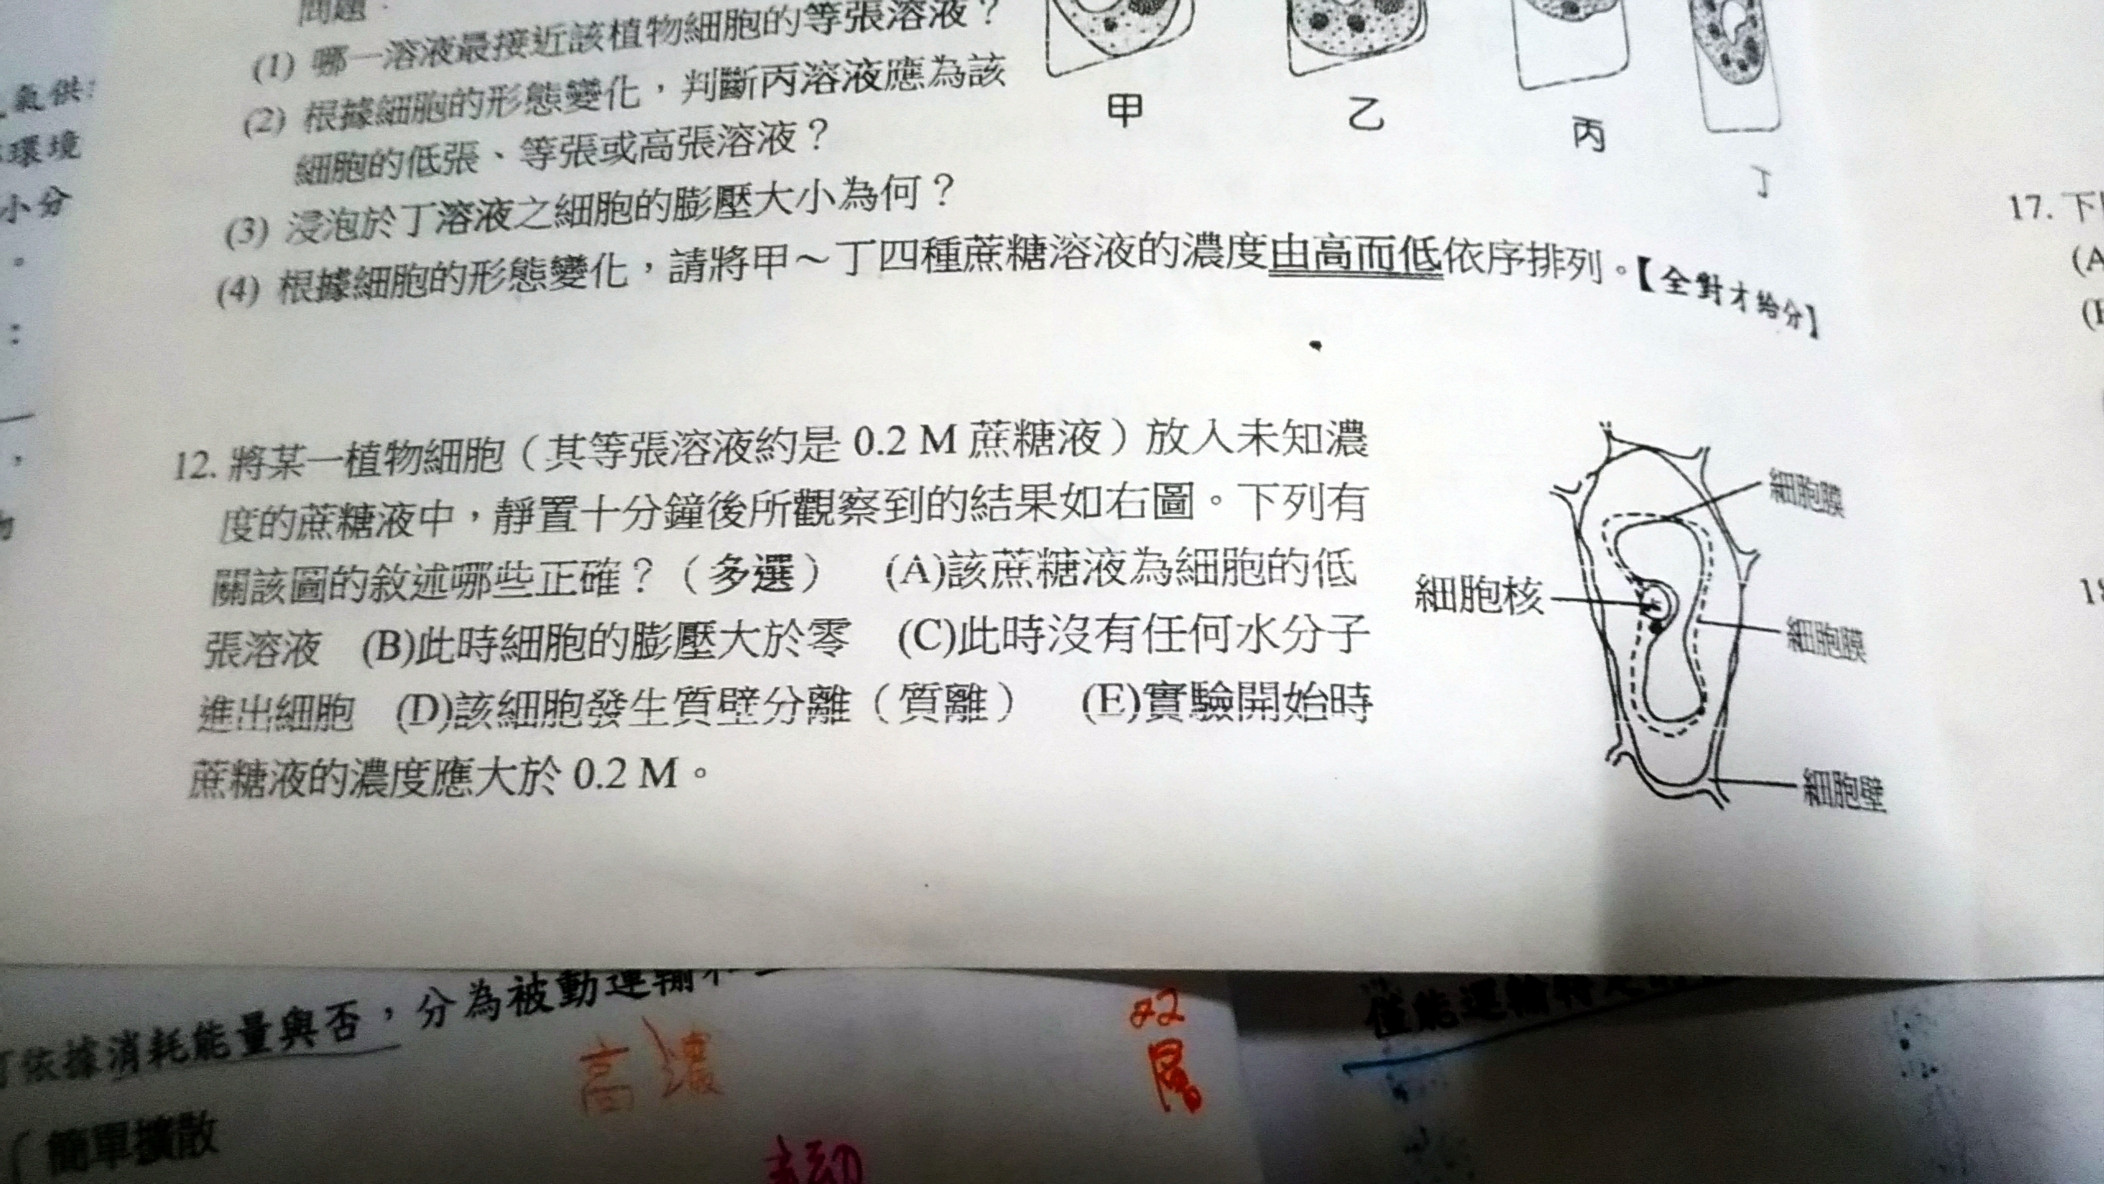 問題：
(1) 哪一溶液最接近該植物細胞的等張溶液？
(2) 根據細胞的形態變化，判斷丙溶液應為該
細胞的低張、等張或高張溶液？
(3) 浸泡於丁溶液之細胞的膨壓大小為何？
(4) 根據細胞的形態變化，請將甲～丁四種蔗糖溶液的濃度由高而低依序排列。【全對才給分】
甲
乙
丙
丁
12. 將某一植物細胞（其等張溶液約是 0.2 M 蔗糖液）放入未知濃
度的蔗糖液中，靜置十分鐘後所觀察到的結果如右圖。下列有
關該圖的敘述哪些正確？（多選） (A)該蔗糖液為細胞的低
張溶液 (B)此時細胞的膨壓大於零 (C)此時沒有任何水分子
進出細胞 (D)該細胞發生質壁分離（質離） (E)實驗開始時
蔗糖液的濃度應大於 0.2 M。
細胞膜
細胞核
細胞膜
細胞壁
氣供
環境
小分
17. 下
(A
18
依據消耗能量與否，分為被動運輸
簡單擴散
高 濃
層
僅能運輸特定